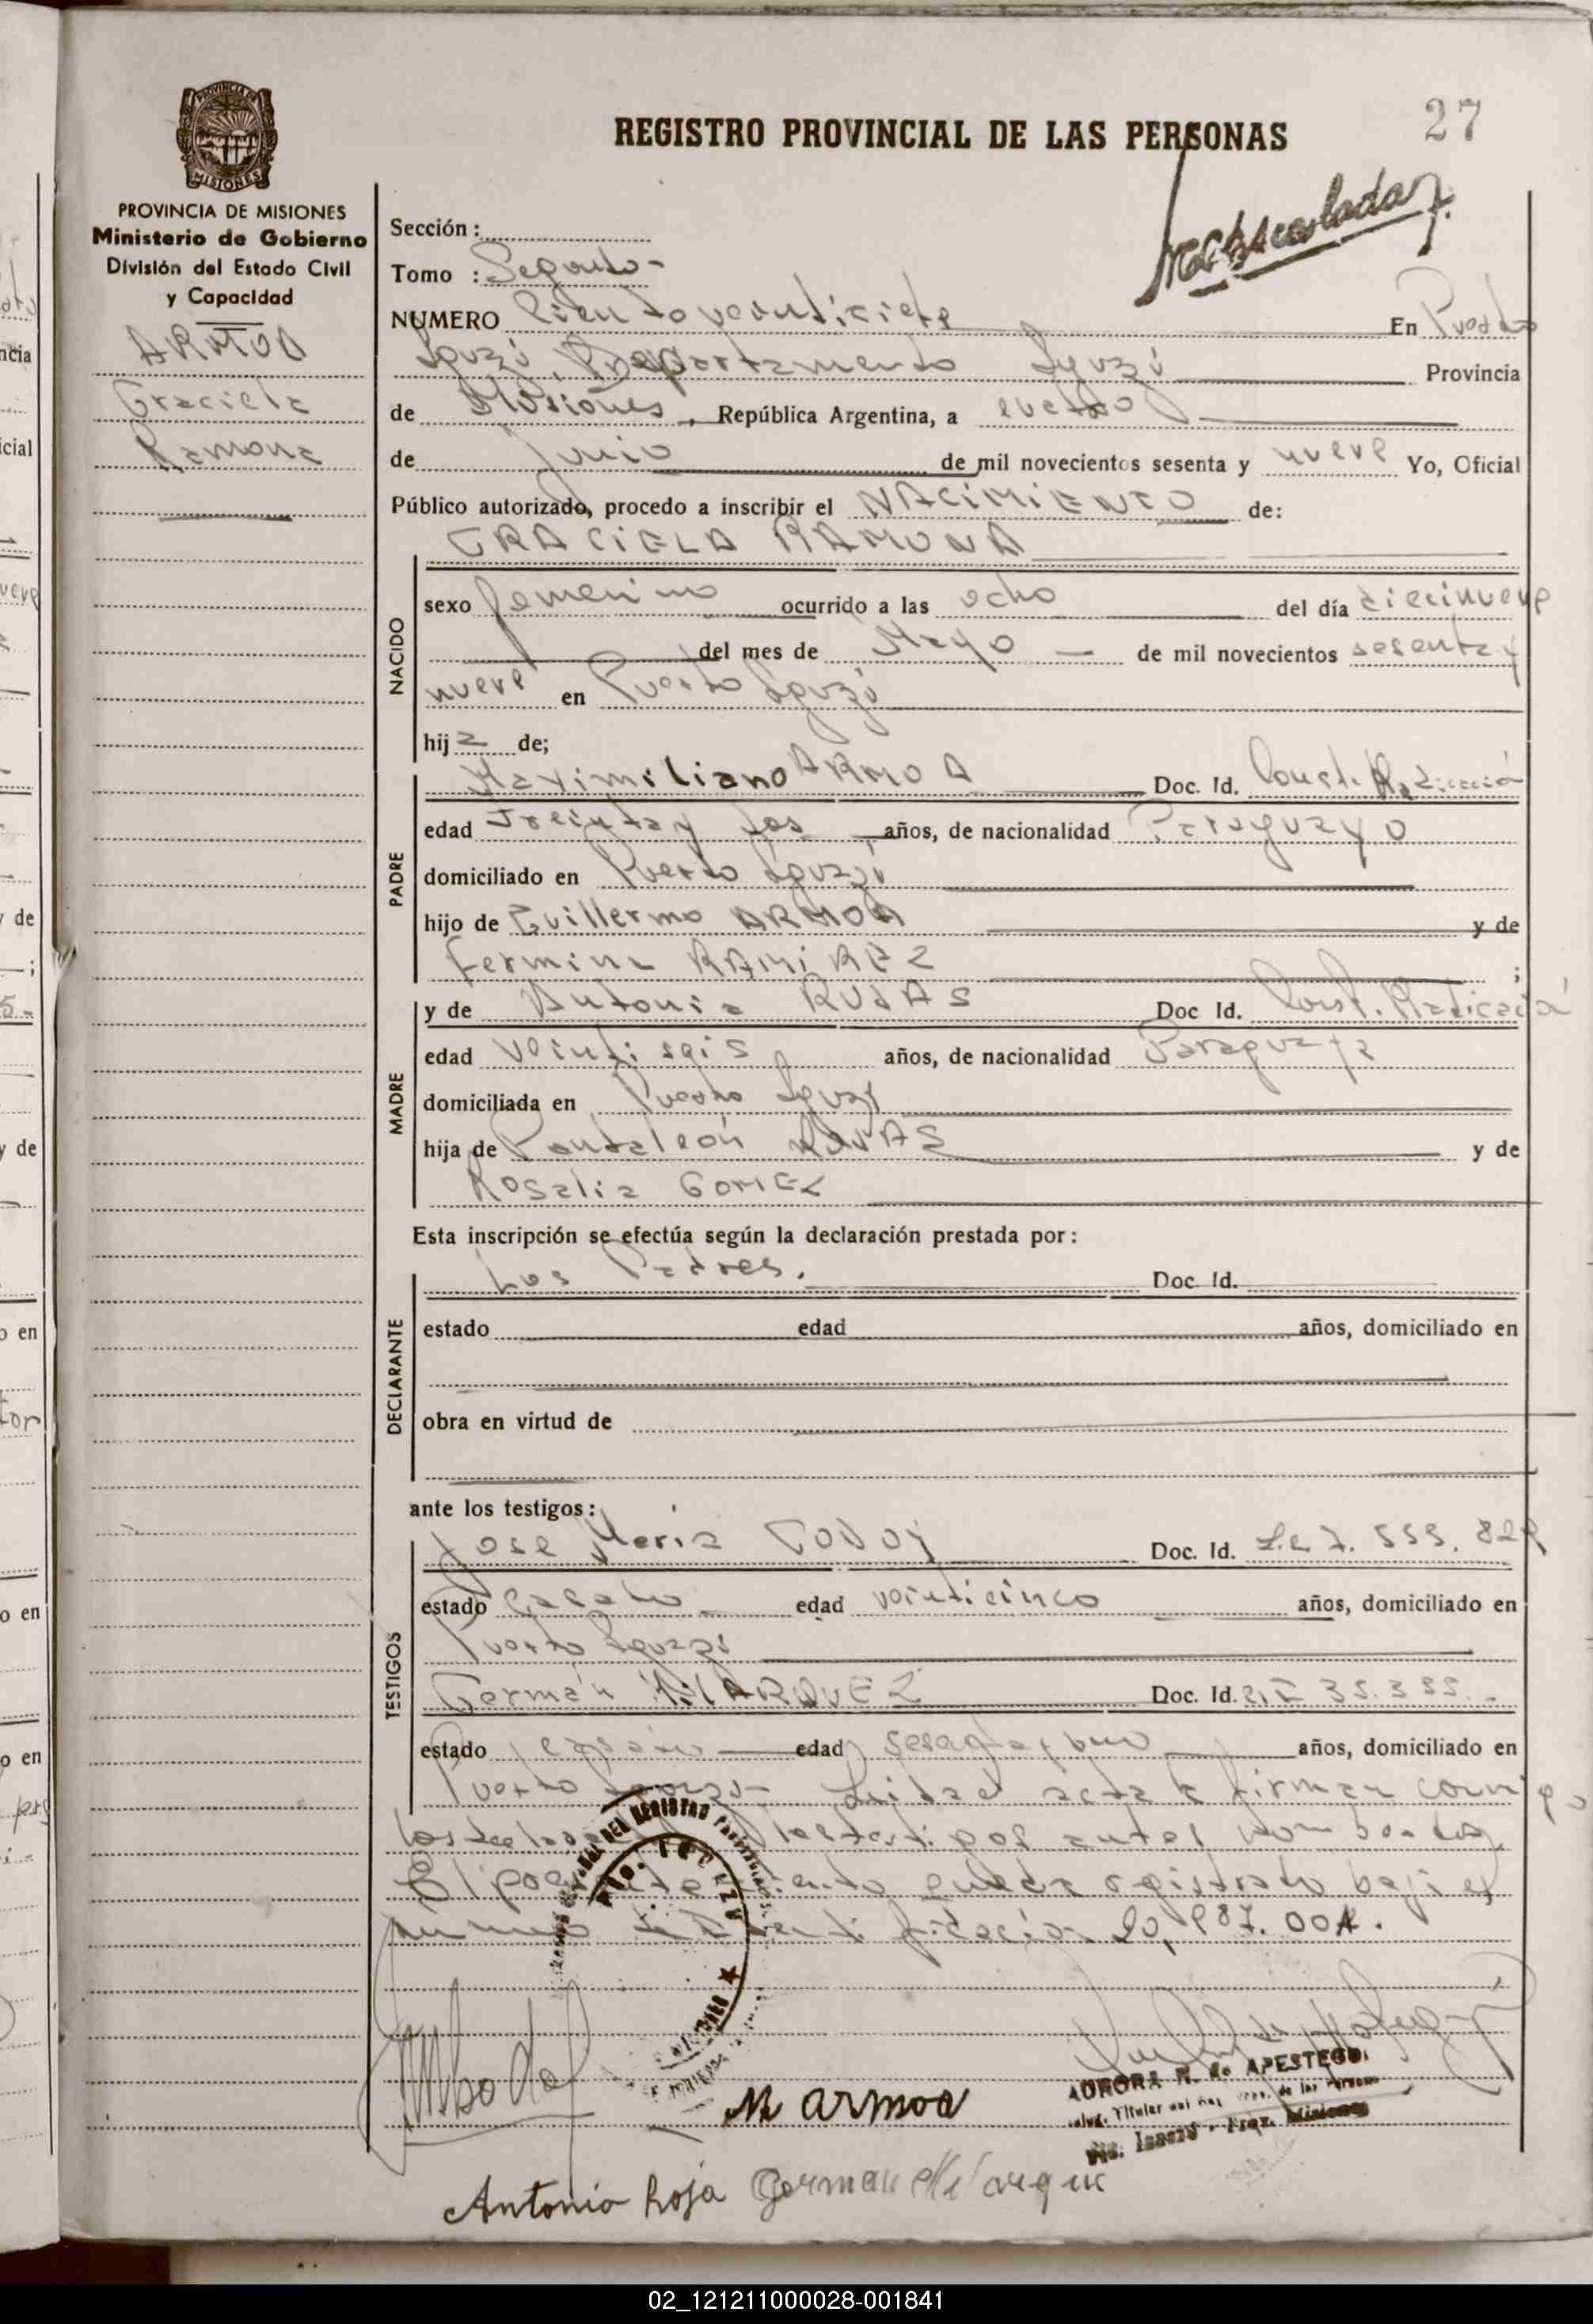 27
REGISTRO PROVINCIAL DE LAS PERSONAS
PROVINCIA DE MISIONES
Ministerio de Gobierno
División del Estado Civil
y Capacidad
ARMOA
Graciela
Ramona
Sección :
Tomo : Segundo -
NUMERO Ciento veintisiete En Puerto
Iguazú, Departamento Iguazú Provincia
de Misiones, República Argentina, a cuatro
de Junio de mil novecientos sesenta y nueve Yo, Oficial
Público autorizado, procedo a inscribir el NACIMIENTO de:
GRACIELA RAMONA
NACIDO
sexo femenino ocurrido a las ocho del día diecinueve
del mes de Mayo — de mil novecientos sesenta y
nueve en Puerto Iguazú
hij a de;
PADRE
Maximiliano ARMOA Doc. Id. Const. Radicación
edad Treinta y dos años, de nacionalidad Paraguayo
domiciliado en Puerto Iguazú
hijo de Guillermo ARMOA y de
Fermina RAMIREZ ;
MADRE
y de Antonia ROJAS Doc Id. Const. Radicación
edad veintiseis años, de nacionalidad Paraguaya
domiciliada en Puerto Iguazú
hija de Pantaleón ROJAS y de
Rosalia GOMEZ
Esta inscripción se efectúa según la declaración prestada por:
DECLARANTE
Los Padres. Doc. Id.
estado edad años, domiciliado en
obra en virtud de
ante los testigos:
TESTIGOS
Jose Maria GODOY Doc. Id. L.e 7. 555. 829
estado Casado edad veinticinco años, domiciliado en
Puerto Iguazú
Germán MILARQUEZ Doc. Id. 35.355.-
estado edad sesenta y uno años, domiciliado en
Puerto Iguazú - Leida el acta la firman conmigo
los y los testigos antes nombrados
El queda registrado bajo el
número de identificación 20.987.004.
M armoa
AURORA R. de APESTEGUI
Antonia Roja German Milarque
02_121211000028-001841